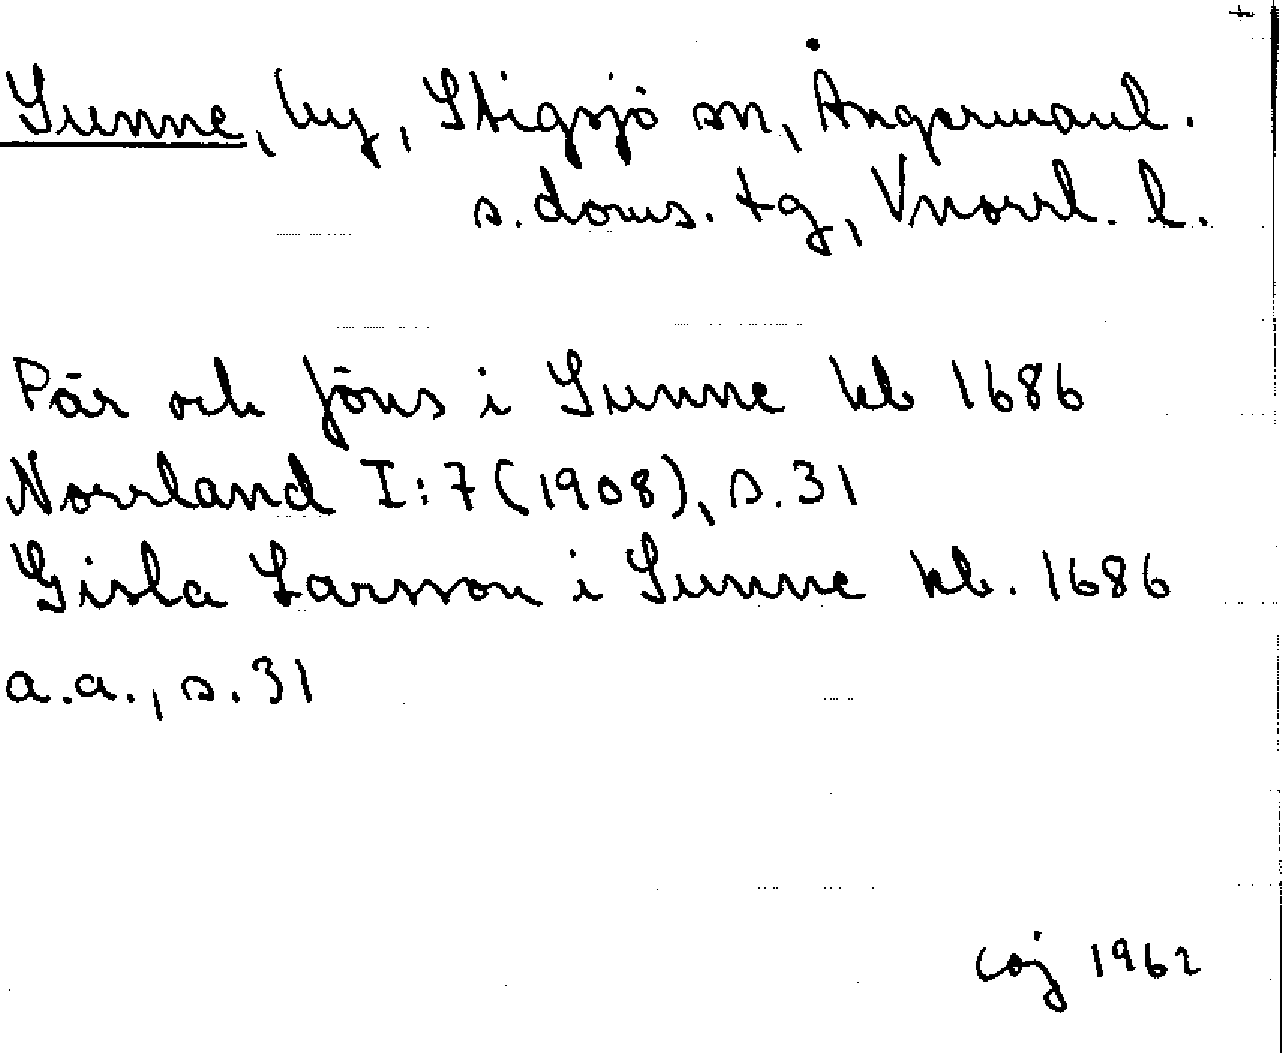 Sunne, by, Stigsjö sn, Ångermanl.
s. doms. tg, Vnorrl. l.
Pär och Jöns i Sunne kb 1686
Norrland I:7 (1908), s. 31
Gisla Larsson i Sunne kb. 1686
a.a., s. 31
CÖJ 1962